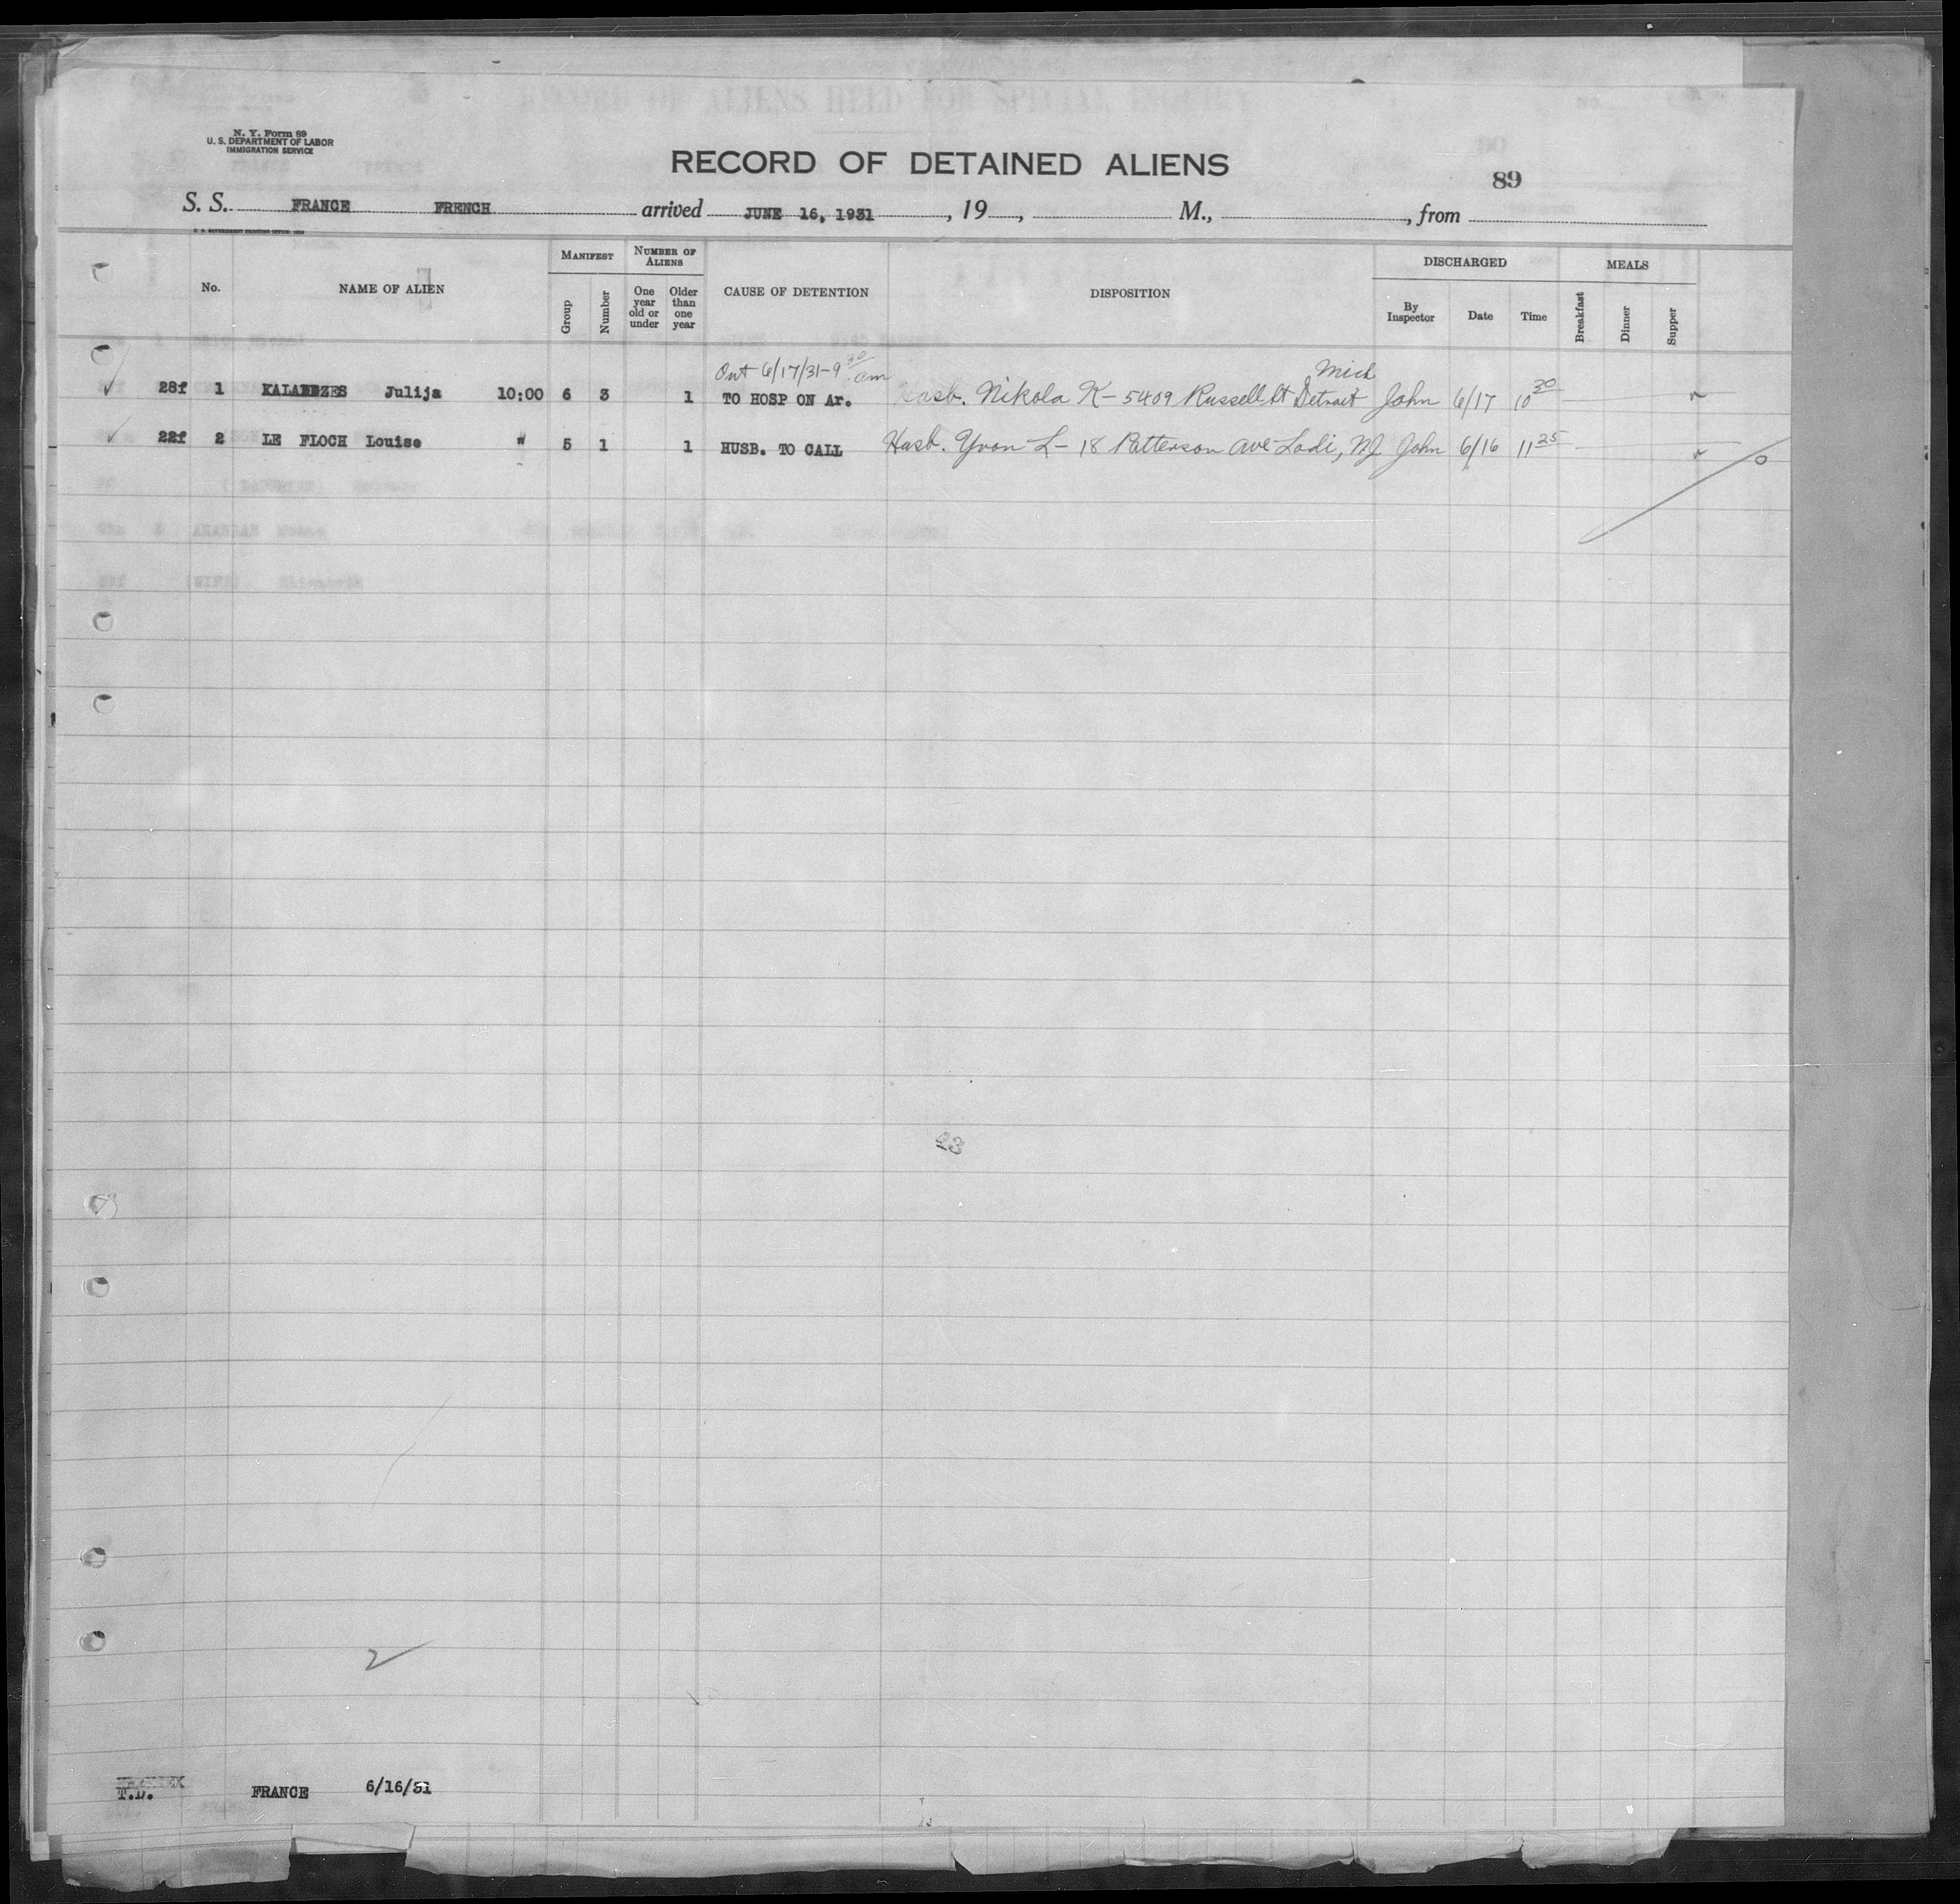 N. Y. Form 89
U. S. DEPARTMENT OF LABOR
IMMIGRATION SERVICE
RECORD OF DETAINED ALIENS
89
S. S. FRANCE FRENCH arrived JUNE 16, 1931, 19 , M., , from
MANIFEST NUMBER OF ALIENS DISCHARGED MEALS
No. NAME OF ALIEN Group Number One year old or under Older than one year CAUSE OF DETENTION DISPOSITION By Inspector Date Time Breakfast Dinner Supper
Out 6/17/31-9 30 am Mich
28f 1 Julija 10:00 6 3 1 TO HOSP ON Ar. Husb. Nikola K- 5409 Russell St Detroit John 6/17 10 30
22f 2 LE FLOCH Louise " 5 1 1 HUSB. TO CALL Husb. Yvon L- 18 Patterson Ave Lodi, NJ John 6/16 11 25
0
23
2
T.D. FRANCE 6/16/31